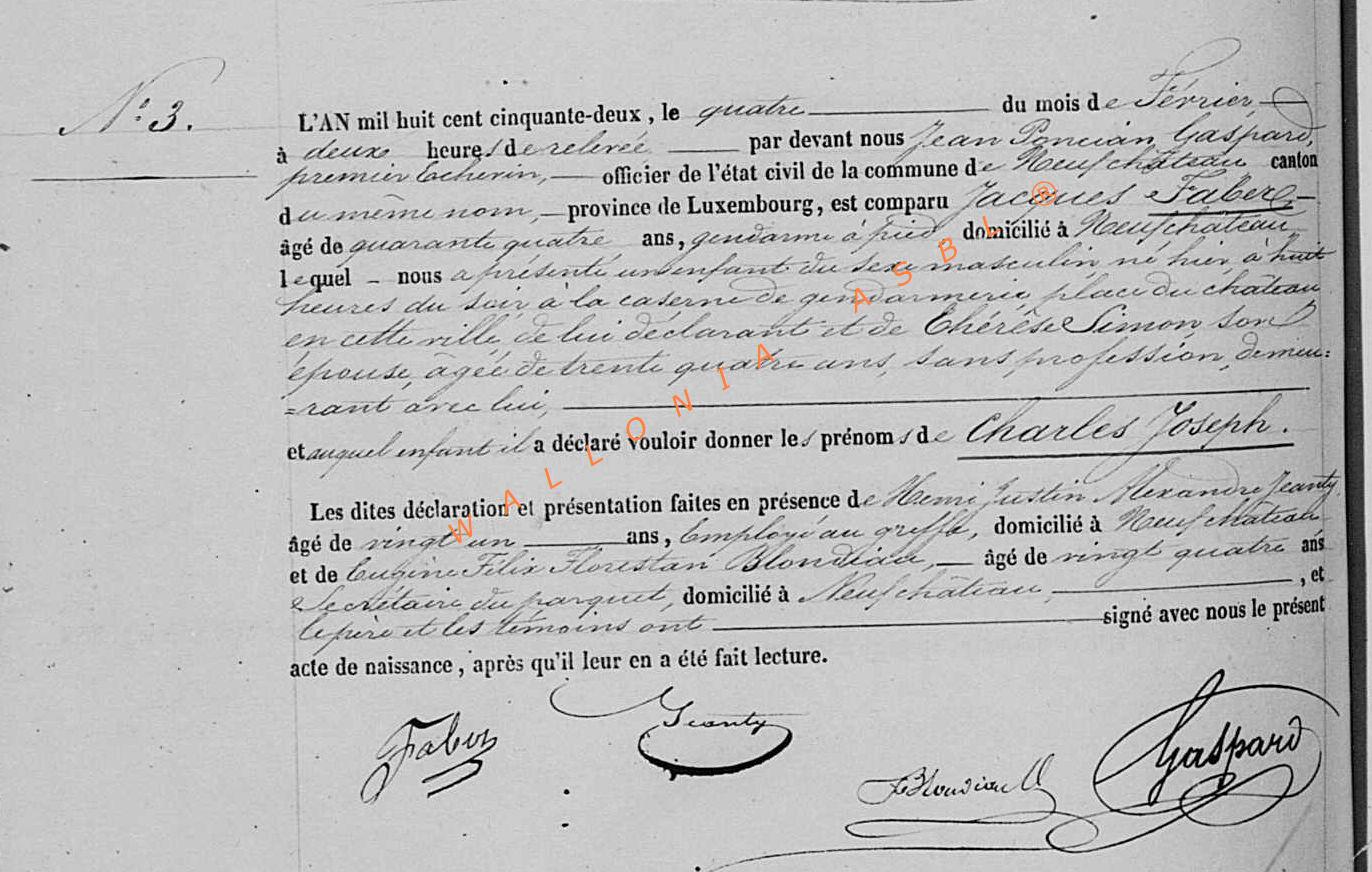 N° 3.
L'AN mil huit cent cinquante-deux, le quatre du mois de Février
à deux heures de relevée par devant nous Jean Poncian Gaspard,
premier Echevin, officier de l'état civil de la commune de Neufchâteau canton
du même nom, province de Luxembourg, est comparu Jacques Faber,
âgé de quarante quatre ans, gendarme à pied domicilié à Neufchâteau
lequel nous a présenté un enfant du sexe masculin né hier à huit
heures du soir à la caserne de gendarmerie, place du château
en cette ville de lui déclarant et de Thérèse Simon son
épouse, âgée de trente quatre ans, sans profession, demeu=
=rant avec lui,
et auquel enfant il a déclaré vouloir donner les prénoms de Charles Joseph.
Les dites déclaration et présentation faites en présence de Henri Justin Alexandre Jeanty
âgé de vingt un ans, Employé au greffe, domicilié à Neufchâteau
et de Eugène Félix Florestan Blondiau, âgé de vingt quatre ans
Secrétaire du parquet, domicilié à Neufchâteau, , et
le père et les témoins ont signé avec nous le présent
acte de naissance, après qu'il leur en a été fait lecture.
Faber
Jeanty
F Blondiau
Gaspard
WALLONIA ASBL ®